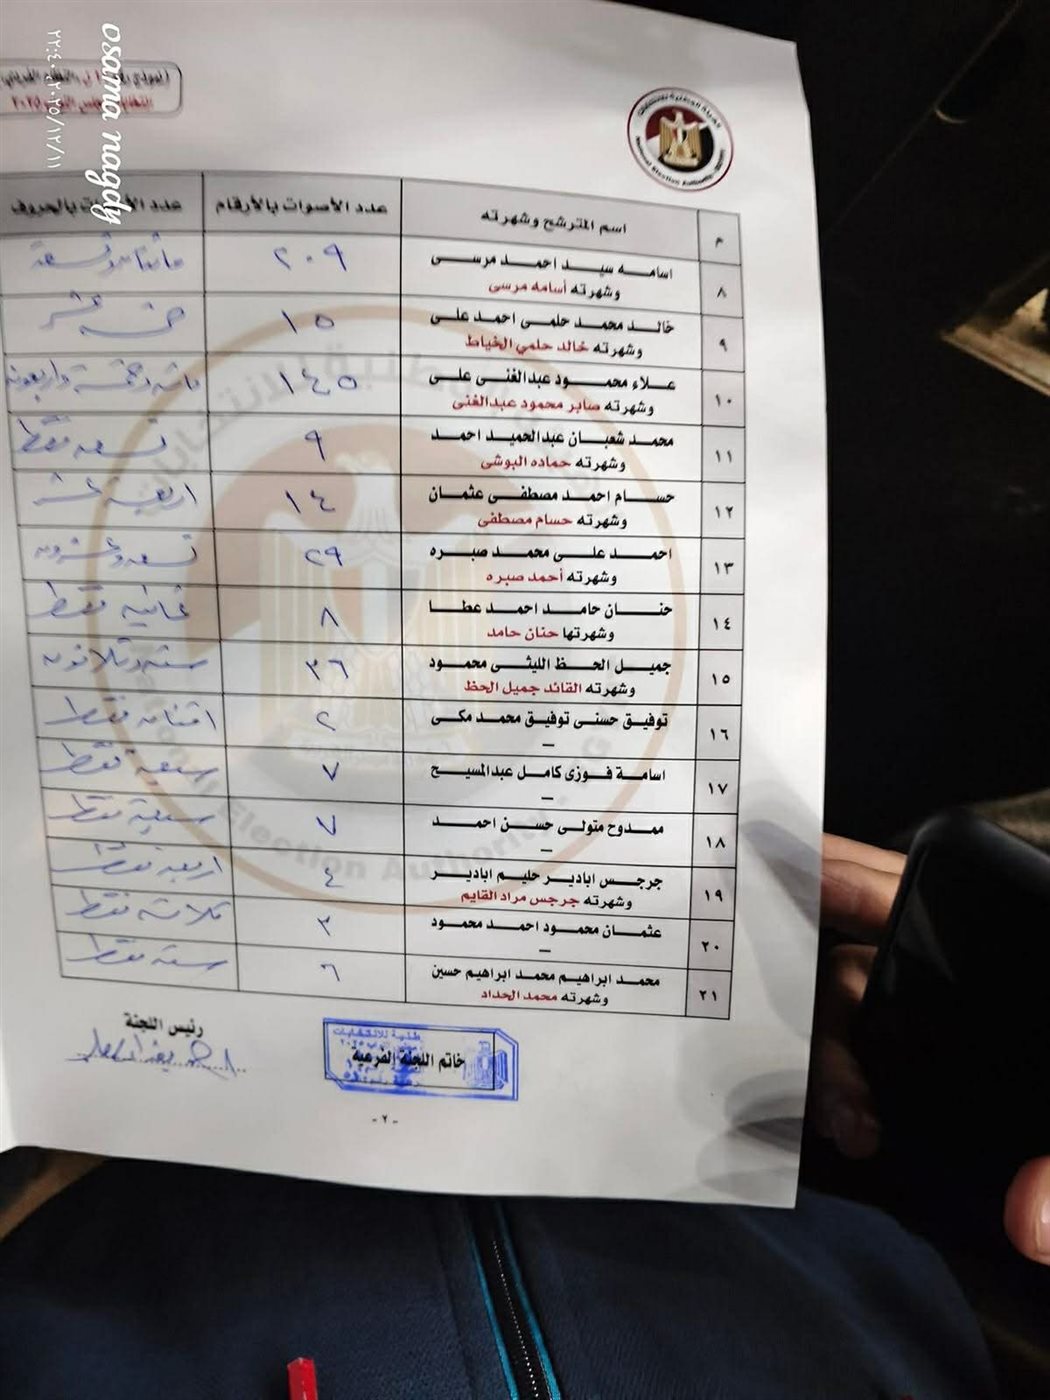 osama nagdy
٢٠٢٥/١٢/١١ ٢٢:٤٠
الهيئة الوطنية للانتخابات
National Election Authority
م
اسم المترشح وشهرته
عدد الأصوات بالأرقام
عدد الأصوات بالحروف
٨
اسامه سيد احمد مرسى
وشهرته أسامه مرسى
٢٠٩
مائتان وتسعة
٩
خالد محمد حلمى احمد على
وشهرته خالد حلمي الخياط
١٥
خمسة عشر
١٠
علاء محمود عبدالغنى على
وشهرته صابر محمود عبدالغنى
١٤٥
مائه وخمسة واربعون
١١
محمد شعبان عبدالحميد احمد
وشهرته حماده البوشى
٩
تسعه فقط
١٢
حسام احمد مصطفى عثمان
وشهرته حسام مصطفى
١٤
اربعة عشر
١٣
احمد على محمد صبره
وشهرته أحمد صبره
٢٩
تسعه وعشرون
١٤
حنان حامد احمد عطا
وشهرتها حنان حامد
٨
ثمانيه فقط
١٥
جميل الحظ الليثى محمود
وشهرته القائد جميل الحظ
٣٦
سته وثلاثون
١٦
توفيق حسنى توفيق محمد مكى
–
٢
اثنان فقط
١٧
اسامة فوزى كامل عبدالمسيح
–
٧
سبعة فقط
١٨
ممدوح متولى حسن احمد
–
٧
سبعة فقط
١٩
جرجس ابادير حليم ابادير
وشهرته جرجس مراد القايم
٤
اربعة فقط
٢٠
عثمان محمود احمد محمود
–
٣
ثلاثه فقط
٢١
محمد ابراهيم محمد ابراهيم حسين
وشهرته محمد الحداد
٦
سته فقط
رئيس اللجنة
خاتم اللجنة الفرعية
-٢-